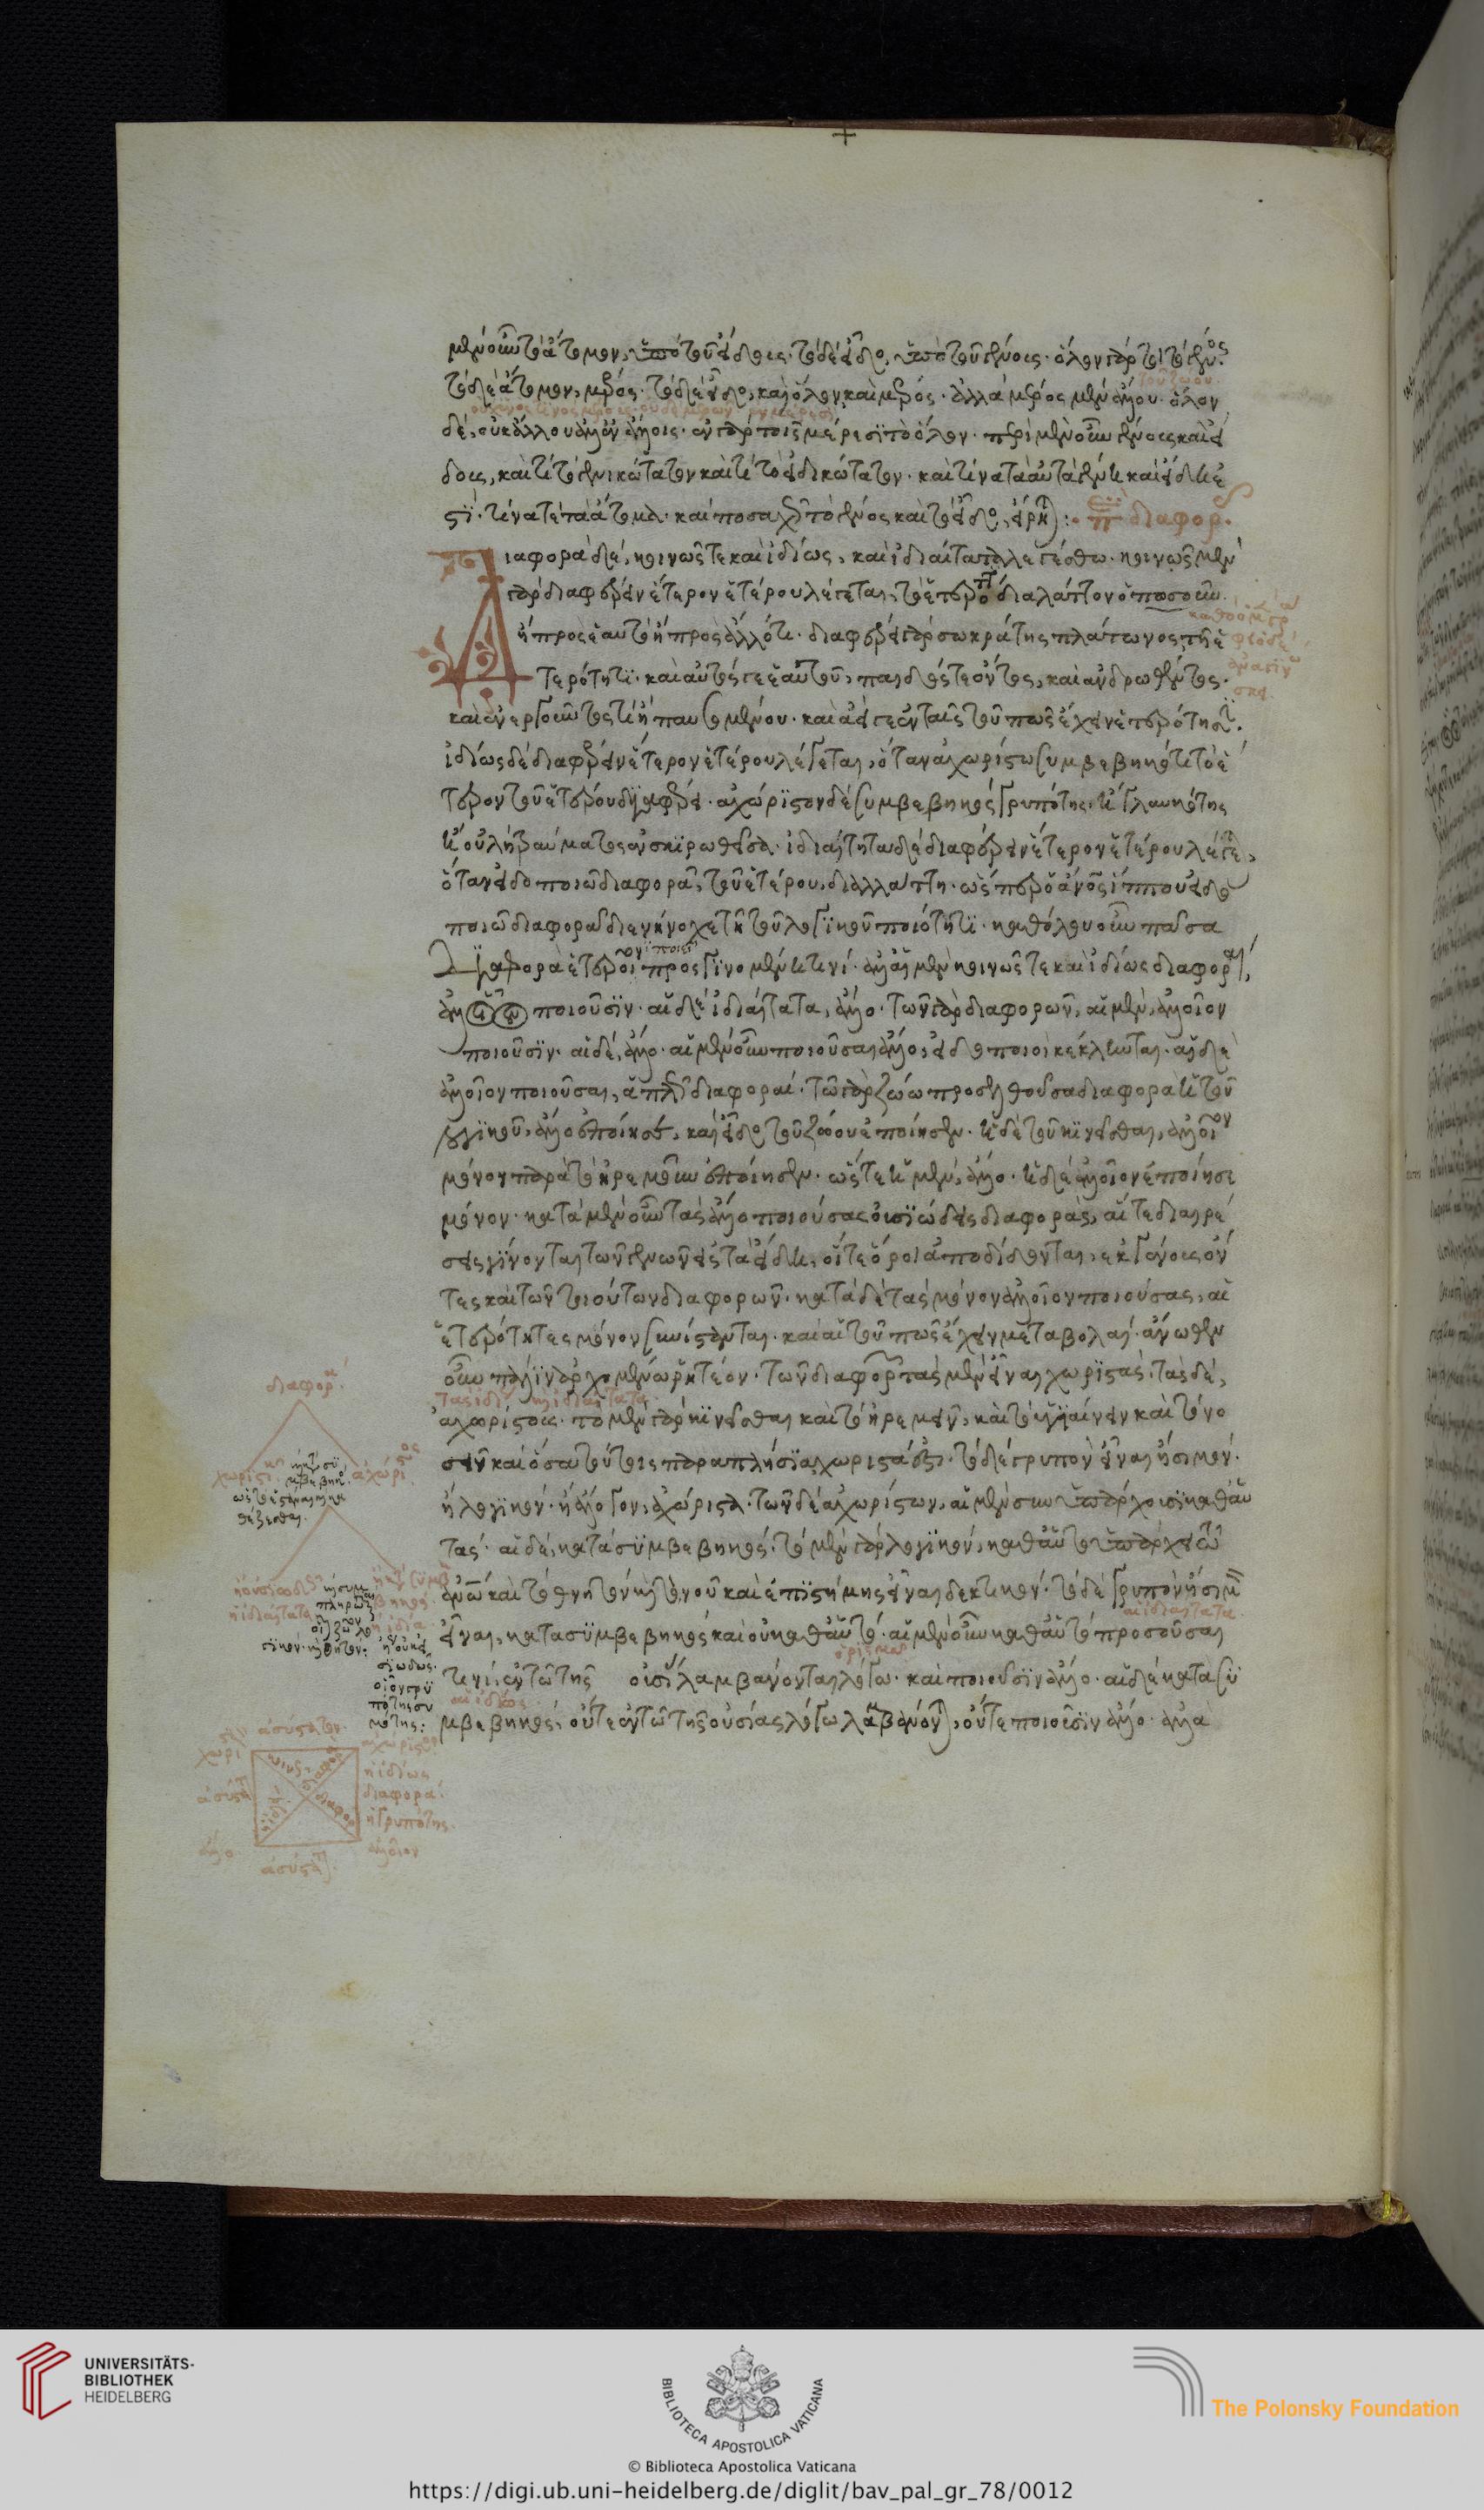 μὲν οὖν τὸ ἄτομον, ὑπὸ τοῦ εἴδους· τὸ δὲ εἶδος, ὑπὸ τοῦ γένους· ὅλον γάρ τι τὸ γένος
τὸ δὲ ἄτομον, μέρος· τὸ δὲ εἶδος, καὶ ὅλον καὶ μέρος· ἀλλὰ μέρος μὲν ἄλλου· ὅλον
δέ, οὐκ ἄλλου ἀλλ' ἐν ἄλλοις· ἐν γὰρ τοῖς μέρεσι τὸ ὅλον· περὶ μὲν οὖν γένους καὶ εἴ
δους, καὶ τί τὸ γενικώτατον καὶ τί τὸ εἰδικώτατον· καὶ τίνα τὰ αὐτὰ γένη καὶ εἴδη ἐ
στί· τίνα τε τὰ ἄτομα· καὶ ποσαχῶς τὸ γένος καὶ τὸ εἶδος, εἴρηται:
διαφορ
Διαφορὰ δὲ, κοινῶς τε καὶ ἰδίως, καὶ ἰδιαίτατα λεγέσθω· κοινῶς μὲν
γὰρ διαφέρειν ἕτερον ἑτέρου λέγεται, τὸ ἑτερότητι διαλάττον ὁπωσοῦν
ἢ πρὸς ἑαυτὸ ἢ πρὸς ἄλλό τι· διαφέρει γὰρ σωκράτης πλάτωνος τῇ ἑ
τερότητι· καὶ αὐτός γε ἑαυτοῦ, παιδός τε ὄντος, καὶ ἀνδρωθέντος·
καὶ ἐνεργοῦντός τι ἢ παυσομένου· καὶ ἀεί γε ἐν ταῖς τοῦ πως ἔχειν ἑτερότησι·
ἰδίως δὲ διαφέρειν ἕτερον ἑτέρου λέγεται, ὅταν ἀχωρίστω συμβεβηκότι τὸ ἕ
τερον τοῦ ἑτέρου διαφέρει· ἀχώριστον δὲ συμβεβηκὸς γρυπότης· ἢ γλαυκότης
ἢ οὐλὴ τραύματος ἐνσκιρωθεῖσα· ἰδιαίτατα δὲ διαφέρειν ἕτερον ἑτέρου λέγεται,
ὅταν εἰδοποιῶ διαφορᾶ, τοῦ ἑτέρου διαλλάττη· ὥσπερ ὁ ἄνθρωπος ἵππου εἰδο
ποιῶ διαφορᾶ διενήνοχε τῇ τοῦ λογικοῦ ποιότητι· καθόλου οὖν πᾶσα
διαφορὰ ἑτεροῖον ποιεῖ προσγινομένη τινί· ἀλλ' αἱ μὲν κοινῶς τε καὶ ἰδίως διαφοραί,
ἀλλοῖον ποιοῦσιν· αἱ δὲ ἰδιαίτατα, ἄλλο· τῶν γὰρ διαφορῶν, αἱ μὲν, ἀλλοῖον
ποιοῦσιν· αἱ δέ, ἄλλο· αἱ μὲν οὖν ποιοῦσαι ἄλλο, εἰδοποιοὶ κέκληνται· αἱ δὲ
ἀλλοῖον ποιοῦσαι, ἁπλῶς διαφοραί· τῶ γὰρ ζώω προσελθοῦσα διαφορὰ ἡ τοῦ
λογικοῦ, ἄλλο ἐποίησε, καὶ εἶδος τοῦ ζώου ἐποίησεν· ἡ δὲ τοῦ κινεῖσθαι, ἀλλοῖον
μόνον παρὰ τὸ ἠρεμοῦν ἐποίησεν· ὥστε ἡ μὲν, ἄλλο· ἡ δὲ ἀλλοῖον ἐποίησε
μόνον· κατὰ μὲν οὖν τὰς ἄλλο ποιούσας οὐσιώδεις διαφορὰς, αἵ τε διαιρέ
σεις γίνονται τῶν γενῶν εἰς τὰ εἴδη, οἵ τε ὅροι ἀποδίδονται, ἐκ γένους ὄν
τες καὶ τῶν τοιούτων διαφορῶν· κατὰ δὲ τὰς μόνον ἀλλοῖον ποιούσας, αἱ
ἑτερότητες μόνον συνίστανται· καὶ αἱ τοῦ πως ἔχειν μεταβολαί· ἄνωθεν
οὖν πάλιν ἀρχομένω ῥητέον· τῶν διαφορῶν τὰς μὲν εἶναι χωριστὰς· τὰς δέ,
ἀχωρίστους· τὸ μὲν γὰρ κινεῖσθαι καὶ τὸ ἠρεμεῖν, καὶ τὸ ὑγιαίνειν καὶ τὸ νο
σεῖν καὶ ὅσα τούτοις παραπλήσια χωριστά ἐστι· τὸ δὲ γρυπὸν εἶναι ἢ σιμὸν·
ἢ λογικὸν· ἢ ἄλογον, ἀχώριστα· τῶν δὲ ἀχωρίστων, αἱ μὲν οὖν ὑπάρχουσι καθ' αὑ
τάς· αἱ δέ, κατὰ συμβεβηκός· τὸ μὲν γὰρ λογικόν, καθ' αὑτὸ ὑπάρχει τῶ
ἀνθρώπω καὶ τὸ θνητὸν καὶ τὸ νοῦ καὶ ἐπιστήμης εἶναι δεκτικόν· τὸ δὲ γρυπὸν ἢ σιμὸν
εἶναι, κατὰ συμβεβηκὸς καὶ οὐ καθ' αὑτό· αἱ μὲν οὖν καθ' αὑτὸ προσοῦσαι
τινί, ἐν τῶ τῆς οὐσίας λαμβάνονται λόγω· καὶ ποιοῦσιν ἄλλο· αἱ δὲ κατὰ συ
μβεβηκός, οὔτε ἐν τῶ τῆς οὐσίας λόγω λαμβάνονται, οὔτε ποιοῦσιν ἄλλο· ἀλλὰ
διαφορά
ἀσύστατον
ἡ ἰδίως
διαφορά
ἡ γρυπότης
ἄλλο
ἀλλοῖον
UNIVERSITÄTS-
BIBLIOTHEK
HEIDELBERG
BIBLIOTECA APOSTOLICA VATICANA
© Biblioteca Apostolica Vaticana
The Polonsky Foundation
https://digi.ub.uni-heidelberg.de/diglit/bav_pal_gr_78/0012